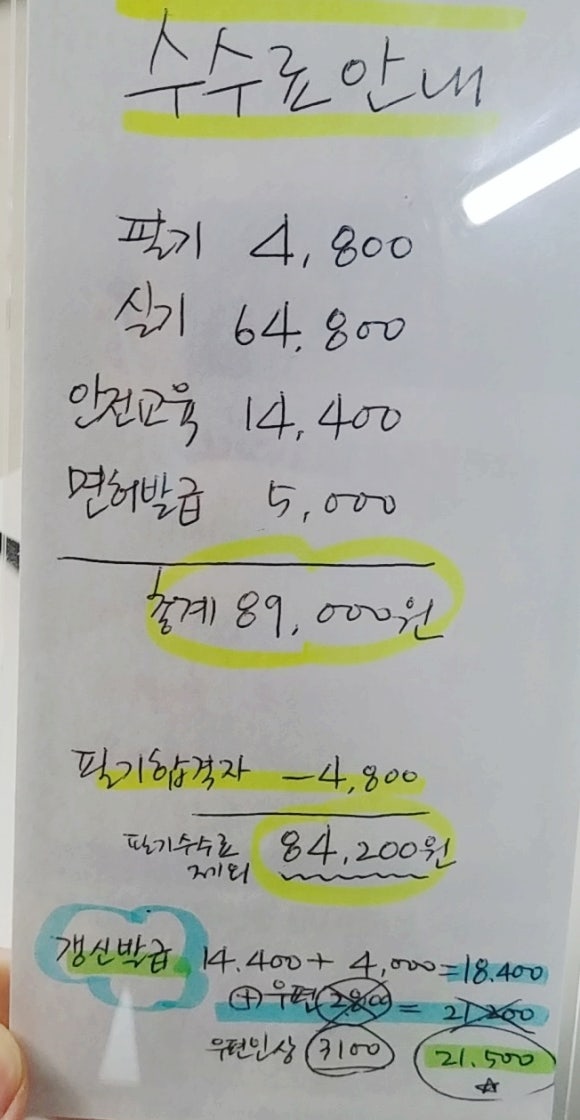 수수료안내
필기 4,800
실기 64,800
안전교육 14,400
면허발급 5,000
총계 89,000원
필기합격자 -4,800
필기수수료 제외 84,200원
갱신발급 14.400 + 4,000 = 18.400
⊕ 우편 2800 = 21,200
우편인상 3100 21.500
☆